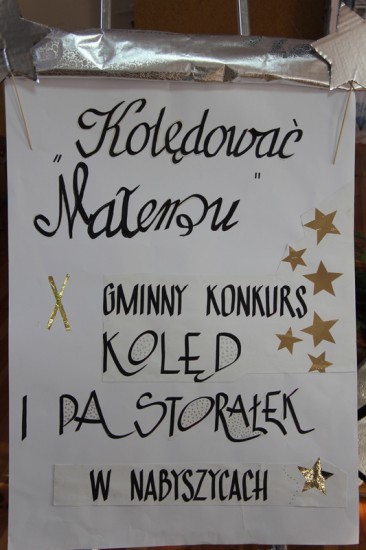 „Kolędować
Małemu"
X GMINNY KONKURS
KOLĘD
I PASTORAŁEK
W NABYSZYCACH